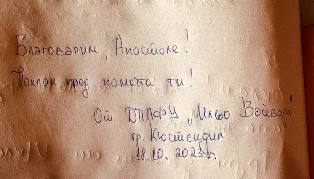 Благодарим, Апостоле!
Поклон пред паметта ти!
От ДПЛФУ „Ильо Войвода"
гр. Кюстендил
18.10. 2023 г.